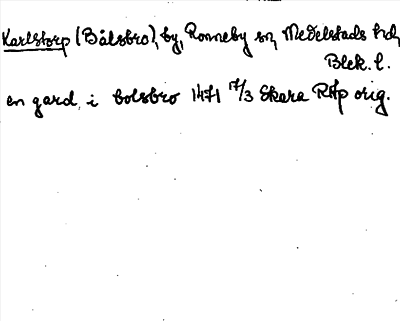 Karlstorp (Bålsbro), by, Ronneby sn, Medelstads hd,
Blek. l.
en gard i bolsbro 1471 17/3 Skara RAp orig.